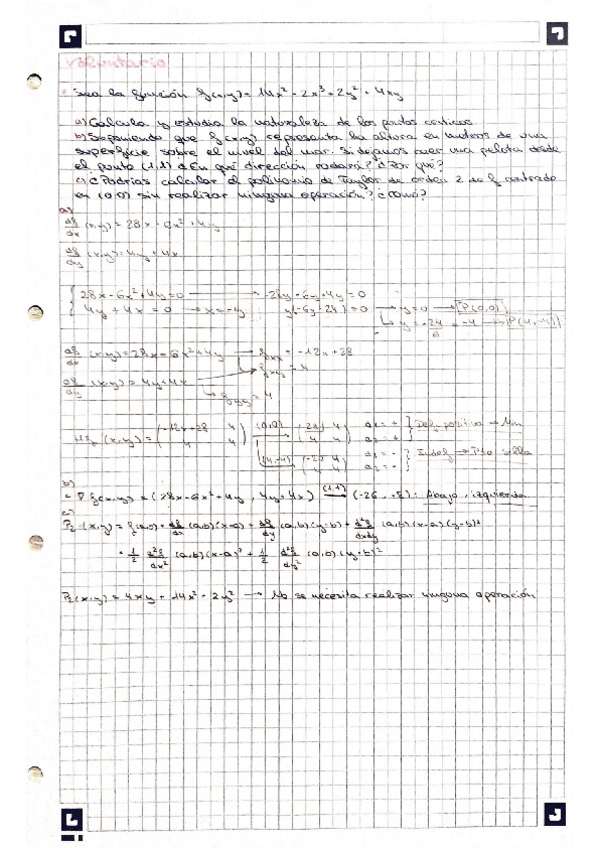 voluntario
Sea la función f(x,y) = 14x² - 2x³ + 2y² + 4xy
a) Calcula y estudia la naturaleza de los puntos críticos
b) Suponiendo que f(x,y) representa la altura en metros de una
superficie sobre el nivel del mar. Si dejamos caer una pelota desde
el punto (1,1) ¿En qué dirección rodará? ¿Por qué?
c) ¿Podrías calcular el polinomio de Taylor de orden 2 de f centrado
en (0,0) sin realizar ninguna operación? ¿Cómo?
a)
df/dx (x,y) = 28x - 6x² + 4y
df/dy (x,y) = 4y + 4x
{ 28x - 6x² + 4y = 0 → -28y - 6y² + 4y = 0
4y + 4x = 0 → x = -y ; y(-6y - 24) = 0 → y = 0 → P(0,0)
→ y = -24/6 = -4 → P(4,-4)
df/dx (x,y) = 28x - 6x² + 4y → fxx = -12x + 28
→ fxy = 4
df/dy (x,y) = 4y + 4x
→ fyy = 4
Hf (x,y) = (-12x+28 4 / 4 4) (0,0) → (28 4 / 4 4) a1 = + a2 = + } Def. positiva → Min
(4,-4) → (-20 4 / 4 4) a1 = - a2 = - } Indef → Pto silla
b)
∇f(x,y) = (28x - 6x² + 4y, 4y + 4x) (1,1) → (-26, -8) : Abajo, izquierda
c)
P₂(x,y) = f(a,b) + df/dx (a,b)(x-a) + df/dy (a,b)(y-b) + d²f/dxdy (a,b)(x-a)(y-b) +
+ 1/2 d²f/dx² (a,b)(x-a)² + 1/2 d²f/dy² (a,b)(y-b)²
P₂(x,y) = 4xy + 14x² + 2y² → No se necesita realizar ninguna operación